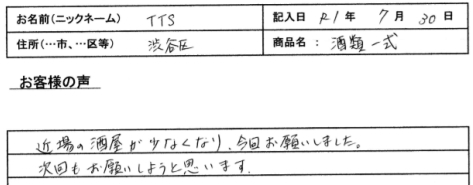 お名前(ニックネーム) TTS 記入日 R1年 7月 30日
住所(…市、…区等) 渋谷区 商品名： 酒類一式
お客様の声
近場の酒屋が少なくなり、今回お願いしました。
次回もお願いしようと思います。